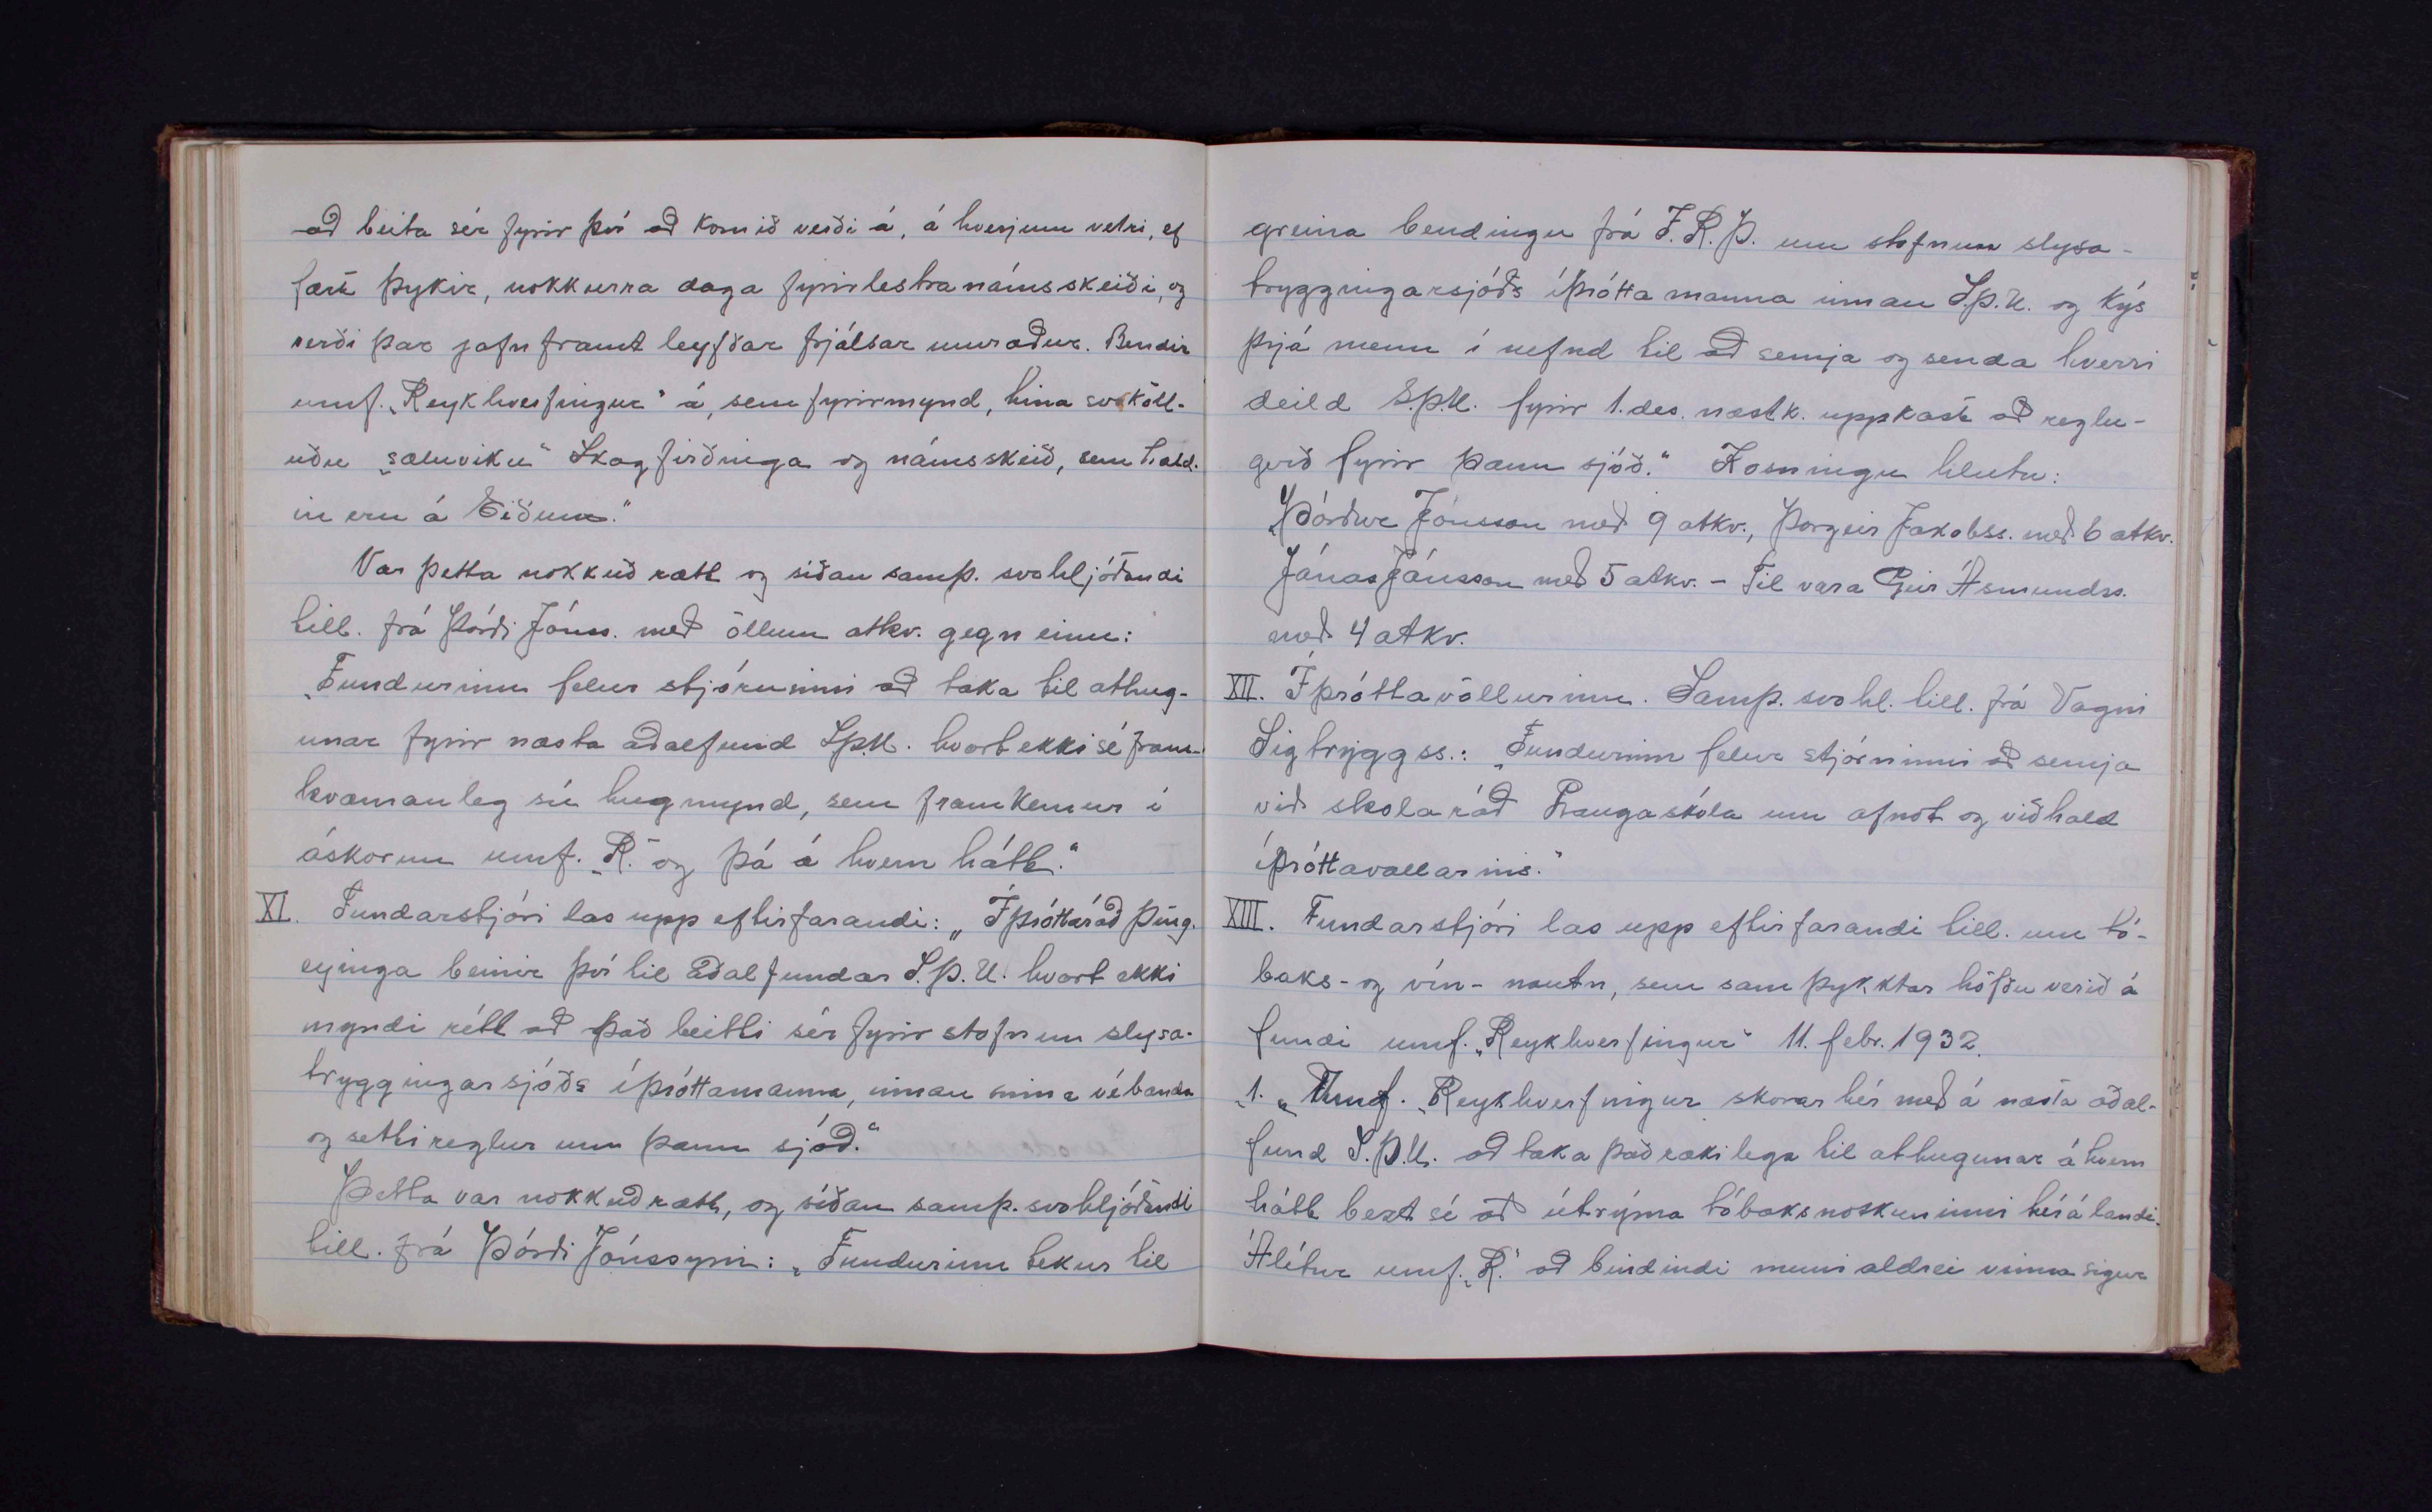 að beita sér fyrir því að komið verði á, á hverjum vetri, ef
fært þykir, nokkurra daga fyrirlestranámsskeiði, og
verði þar jafnframt leyfðar frjálsar umræður. Bendir
umf. „Reykhverfingur“ á, sem fyrirmynd, hina svoköll-
uðu „sæluviku“ Skagfirðinga og námsskeið, sem hald-
in eru á Eiðum.“
Var þetta nokkuð rætt og síðan samþ. svohljóðandi
till. frá Þórði Jónss. með öllum atkv. gegn einu:
„Fundurinn felur stjórninni að taka til athug-
unar fyrir næsta aðalfund S.þ.U. hvort ekki sé fram-
kvæmanleg sú hugmynd, sem fram kemur í
áskorun umf. „R.“ og þá á hvern hátt.“
XI. Fundarstjóri las upp eftirfarandi: „Íþróttaráð Þing-
eyinga beinir því til aðalfundar S.þ.U. hvort ekki
myndi rétt að það beitti sér fyrir stofnun slysa-
tryggingarsjóðs íþróttamanna, innan sinna vébanda
og setti reglur um þann sjóð.“
Þetta var nokkuð rætt, og síðan samþ. svohljóðandi
till. frá Þórði Jónssyni: „Fundurinn tekur til
greina bendingu frá Í.R.Þ. um stofnun slysa-
tryggingarsjóðs íþróttamanna innan S.þ.U. og kýs
þrjá menn í nefnd til að semja og senda hverri
deild S.þ.U. fyrir 1. des. næstk. uppkast að reglu-
gerð fyrir þann sjóð.“ Kosningu hlutu:
Þórður Jónsson með 9 atkv., Þorgeir Jakobss. með 6 atkv.
Jónas Jónsson með 5 atkv. - Til vara Geir Ásmundss.
með 4 atkv.
XII. Íþróttavöllurinn. Samþ. svohl. till. frá Vagni
Sigtryggss.: „Fundurinn felur stjórninni að semja
við skólaráð Laugaskóla um afnot og viðhald
íþróttavallarins.“
XIII. Fundarstjóri las upp eftirfarandi till. um tó-
baks- og vín-nautn, sem samþykktar höfðu verið á
fundi umf. „Reykhverfingur“ 11. febr. 1932.
„1. „Umf. „Reykhverfingur skorar hér með á næsta aðal-
fund S.Þ.U. að taka það rækilega til athugunar á hvern
hátt bezt sé að útrýma tóbaksnotkuninni hér á landi.
Álítur umf. „R.“ að bindindi muni aldrei vinna sigur